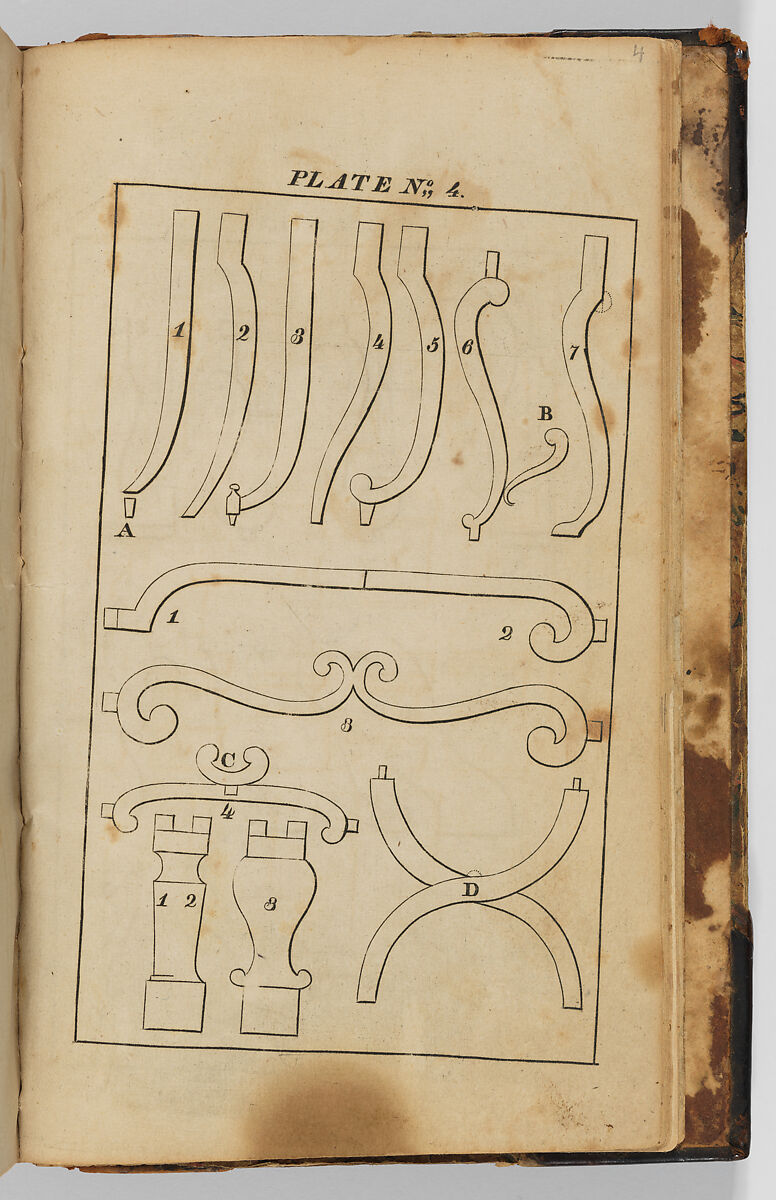 4
PLATE No,, 4.
1 2 3 4 5 6 7
B
A
1 2
3
C
4
1 2 3
D